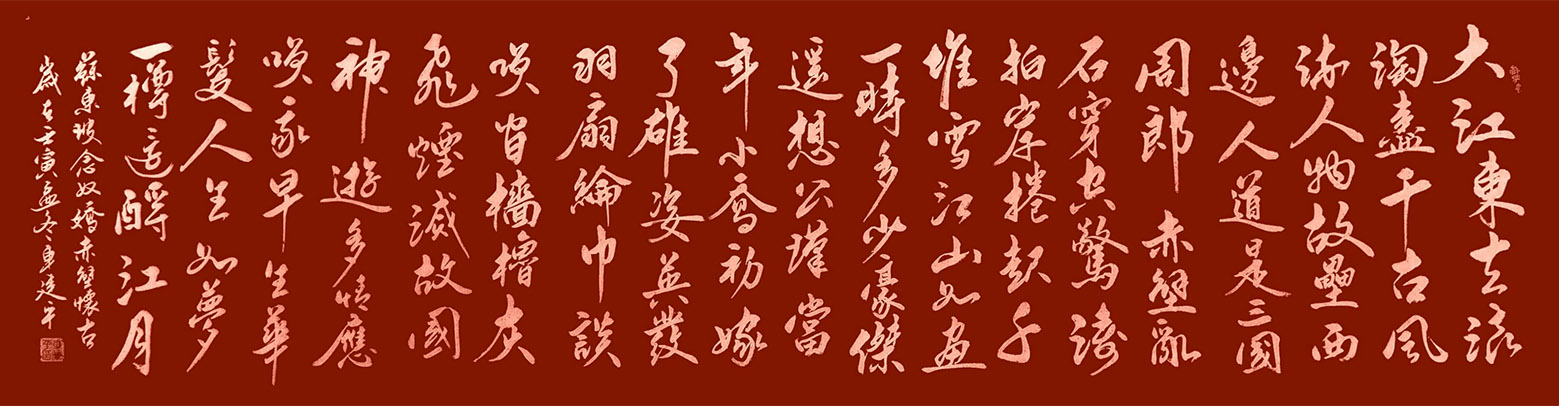 大江東去浪
淘盡千古風
流人物故壘西
邊人道是三國
周郎赤壁亂
石穿空驚濤
拍岸捲起千
堆雪江山如畫
一時多少豪傑
遥想公瑾當
年小喬初嫁
了雄姿英發
羽扇綸巾談
咲間檣櫓灰
飛煙滅故國
神遊多情應
咲我早生華
髮人生如夢
一樽還酹江月
蘇東坡念奴嬌赤壁懷古
歲在壬寅孟冬